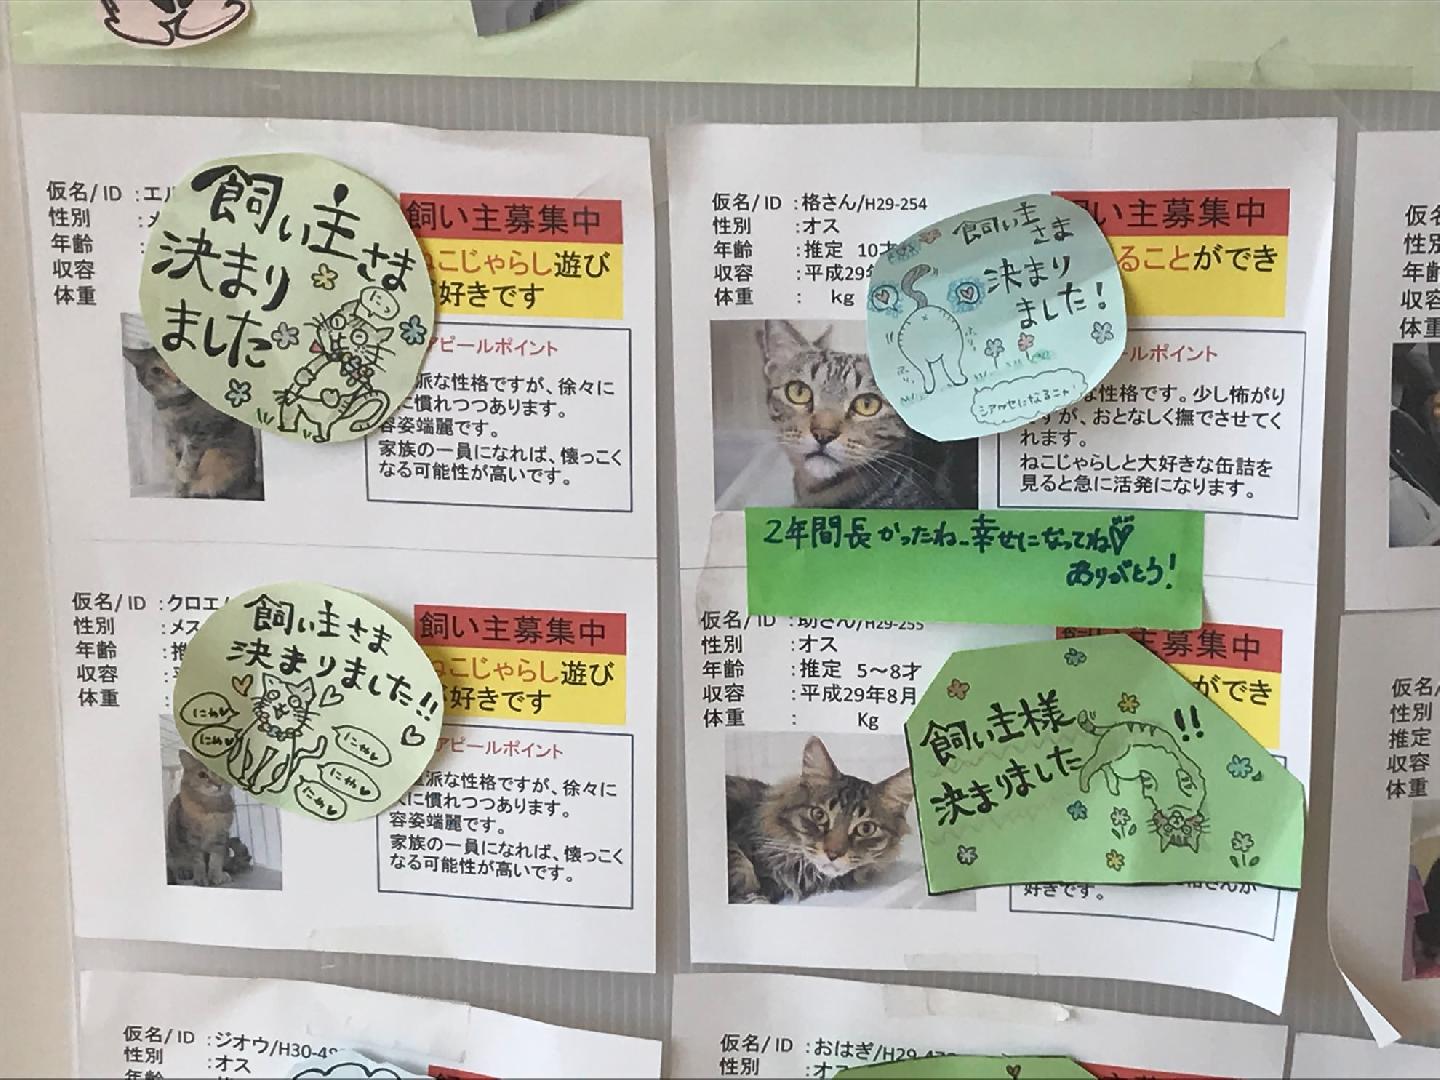 仮名/ID :エル
性別 :メ
年齢
収容
体重
飼い主さま
決まり
ました
飼い主募集中
ねこじゃらし遊び
好きです
アピールポイント
派な性格ですが、徐々に
に慣れつつあります。
容姿端麗です。
家族の一員になれば、懐っこく
なる可能性が高いです。
仮名/ID :クロエ/
性別 :メス
年齢 :推
収容 :平
体重 :
飼い主さま
決まりました!!
にゃ
にゃ
にゃ
にゃ
にゃ
飼い主募集中
ねこじゃらし遊び
好きです
アピールポイント
立派な性格ですが、徐々に
人に慣れつつあります。
容姿端麗です。
家族の一員になれば、懐っこく
なる可能性が高いです。
仮名/ID :格さん/H29-254
性別 :オス
年齢 :推定 10才
収容 :平成29年
体重 : kg
飼い主
さま
決まり
ました!
シアワセになるニャ!
飼い主募集中
ることができ
ールポイント
な性格です。少し怖がり
ですが、おとなしく撫でさせてく
れます。
ねこじゃらしと大好きな缶詰を
見ると急に活発になります。
2年間長かったね 幸せになってね
ありがとう!
仮名/ID :助さん/H29-255
性別 :オス
年齢 :推定 5～8才
収容 :平成29年8月
体重 : Kg
飼い主様
決まりました!!
飼い主募集中
ができ
格さんが
好きです。
仮名/ID :ジオウ/H30-49
性別 :オス
年齢
仮名/ID :おはぎ/H29-47
性別 :オス
仮名
性別
年齢
収容
体重
仮名/
性別
推定
収容
体重